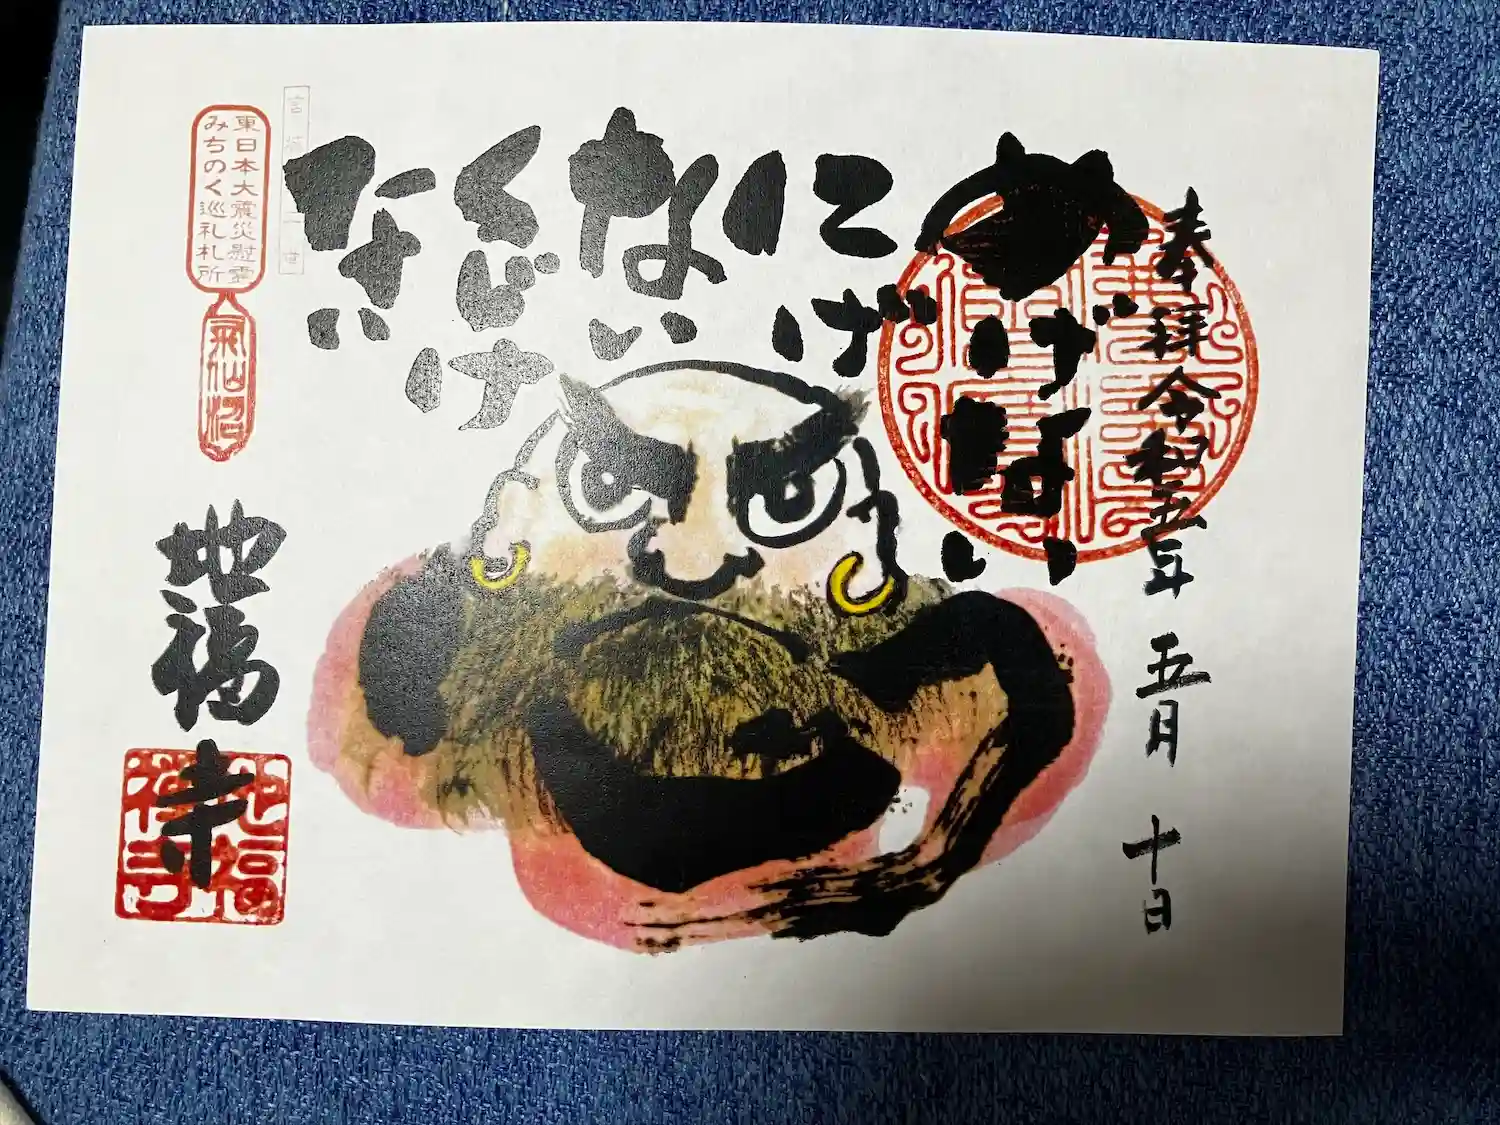 奉拝 令和五年 五月 十日
めげない
にげ
ない
くじけ
ない
東日本大震災慰霊
みちのく巡礼札所
氣仙沼
地福寺
地福
禅寺